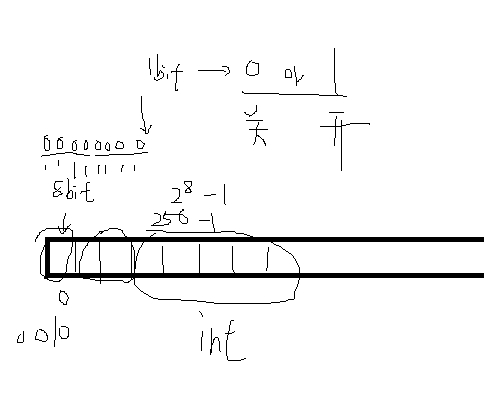 1bit → 0 or 1
关 开
00000000
11111111
8bit
2^8 - 1
256 - 1
0
0010
int